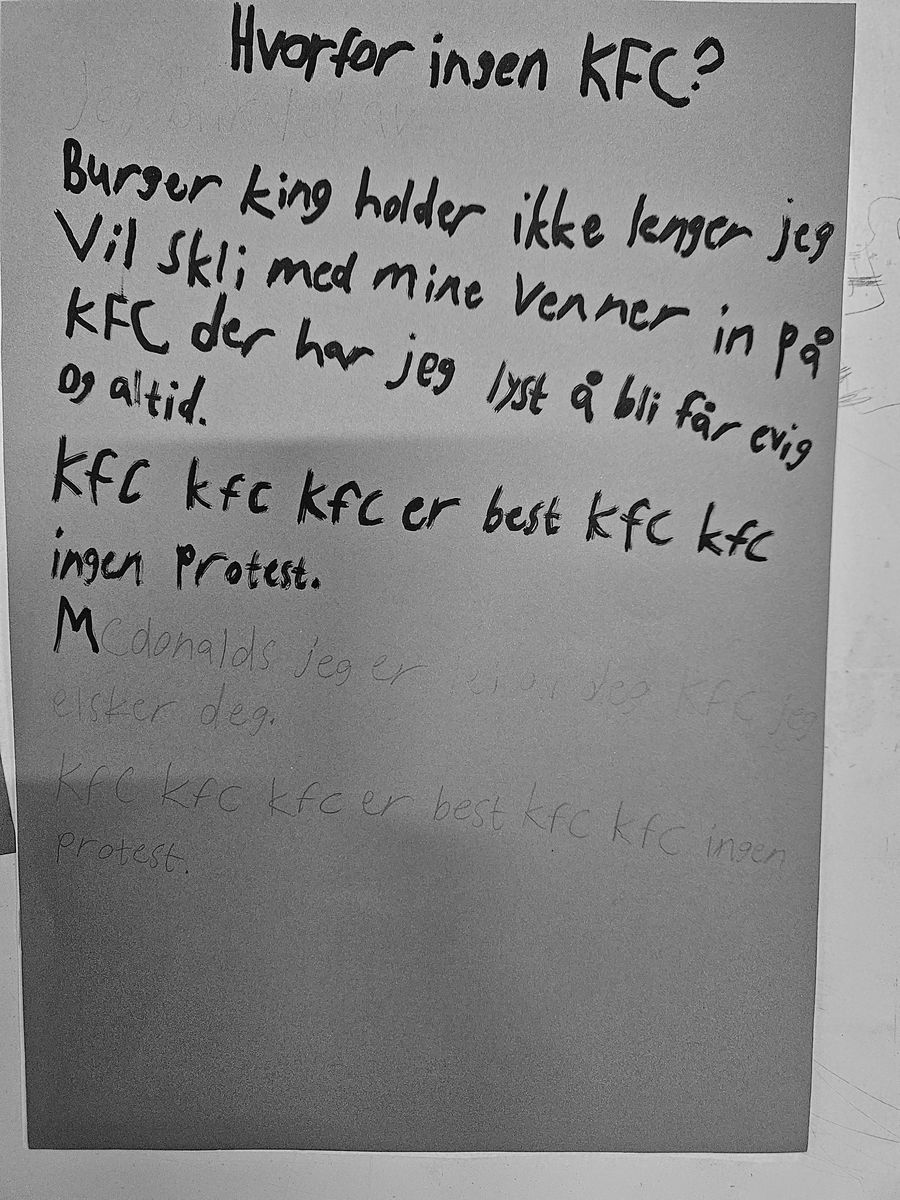 Hvorfor ingen KFC?
Burger king holder ikke lenger jeg
Vil skli med mine venner in på
KFC der har jeg lyst å bli får evig
og altid.
KFC kfc kfc er best kfc kfc
ingen protest.
Mcdonalds jeg er lei av deg KFC jeg
elsker deg.
KfC kfc kfc er best kfc kfc ingen
protest.